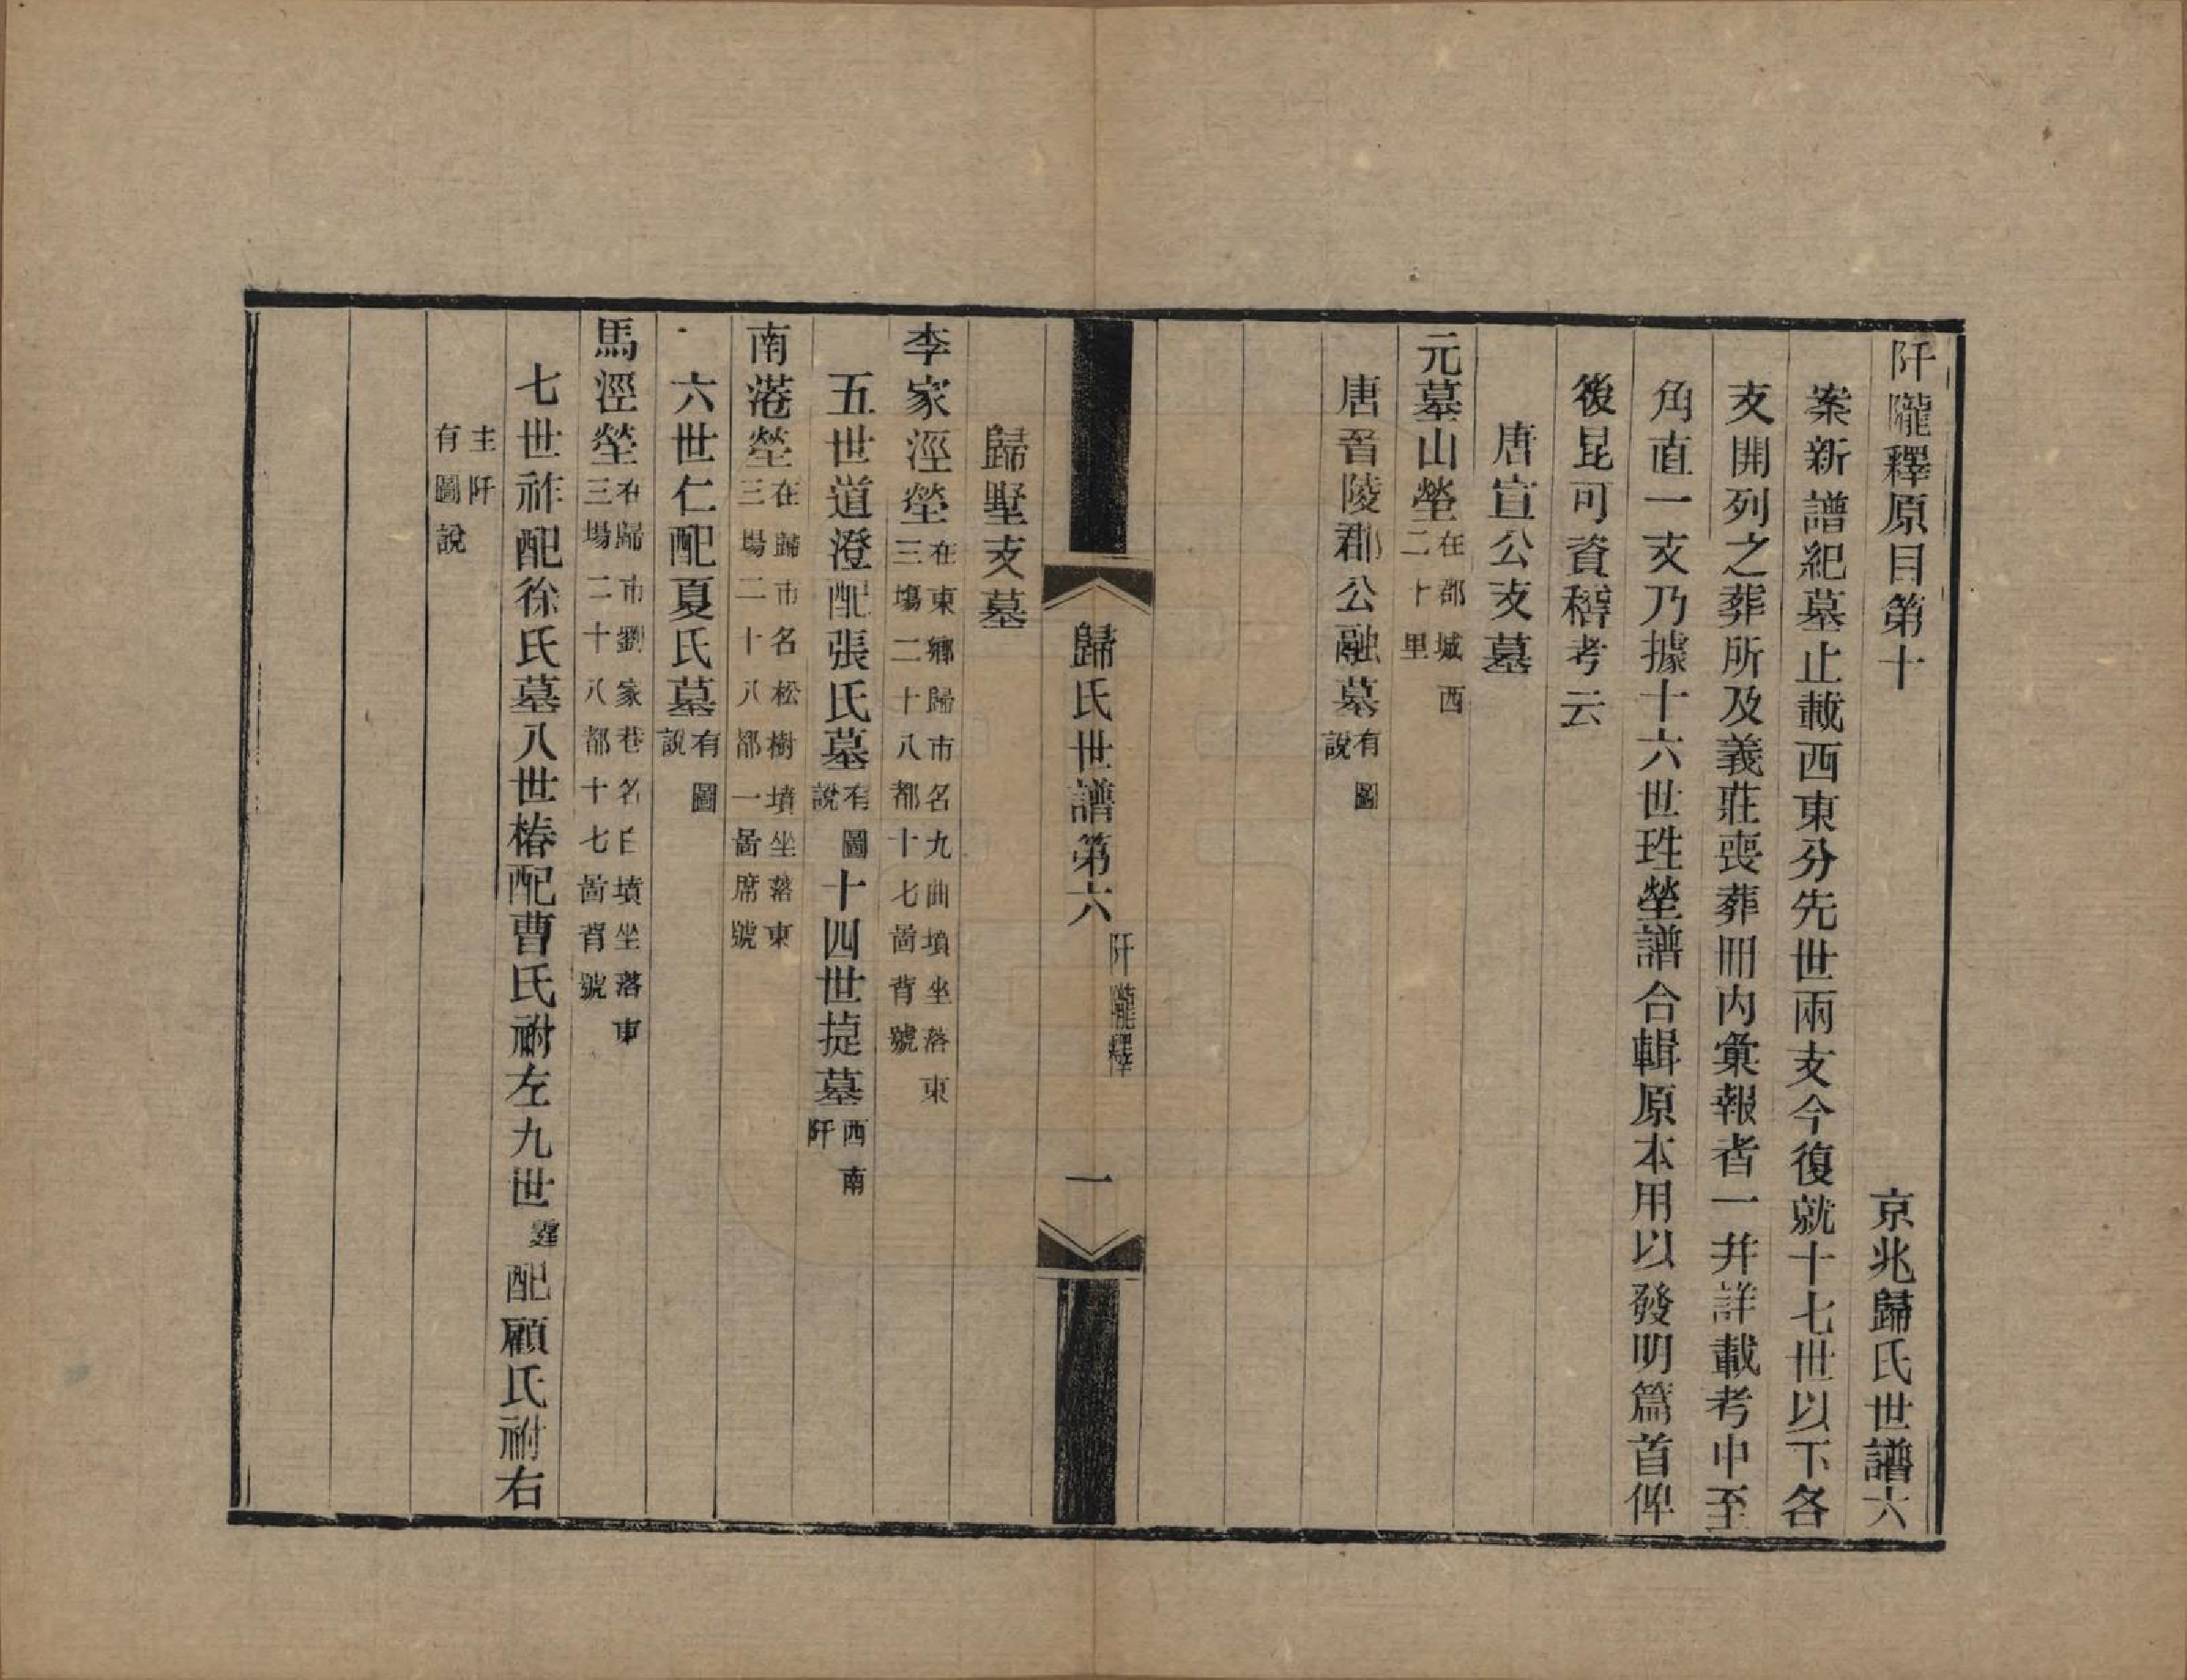 阡隴釋原目第十　京兆歸氏世譜六
案新譜紀墓止載西東分先世兩支今復就十七世以下各
支開列之葬所及義莊喪葬冊内彙報者一幷詳載考中至
角直一支乃據十六世珄塋譜合輯原本用以發明篇首俾
後昆可資稽考云
唐宣公支墓
元墓山塋在郡城西二十里
唐晉陵郡公融墓有圖說
歸氏世譜第六　阡隴釋　一
歸墅支墓
李家涇塋在東鄉歸市名九曲墳坐落東三塲二十八都十七啚背號
五世道澄配張氏墓有圖說十四世㨗墓西南阡
南港塋在歸市名松樹墳坐落東三塲二十八都一啚席號
六世仁配夏氏墓有圖說
馬涇塋在歸市劉家巷名白墳坐落東三塲二十八都十七啚背號
七世祚配徐氏墓八世椿配曹氏祔左九世霆配顧氏祔右
主阡有圖說